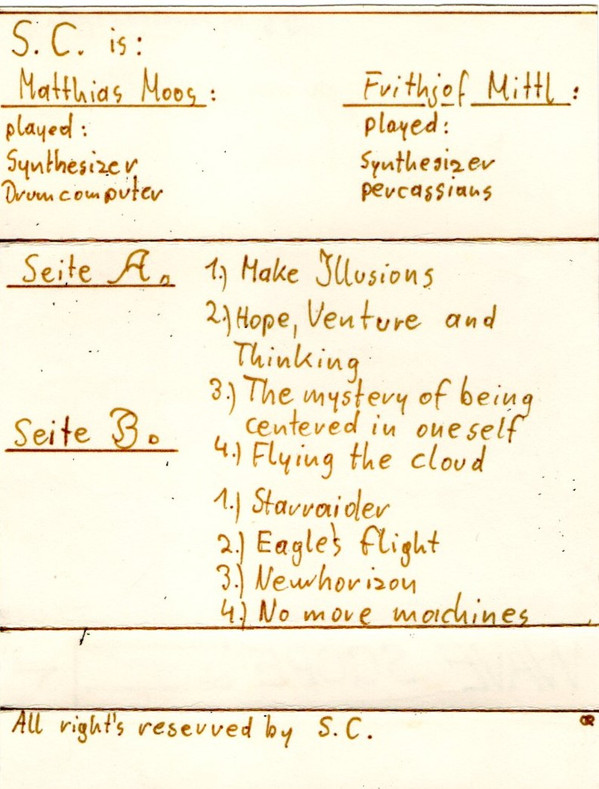 S.C. is:
Matthias Moos:
played:
Synthesizer
Drumcomputer
Frithjof Mittl:
played:
Synthesizer
percassians
Seite A.
1.) Make Illusions
2.) Hope, Venture and
Thinking
3.) The mystery of being
centered in oneself
4.) Flying the cloud
Seite B.
1.) Starraider
2.) Eagle's flight
3.) Newhorizon
4.) No more machines
All right's reservved by S.C.